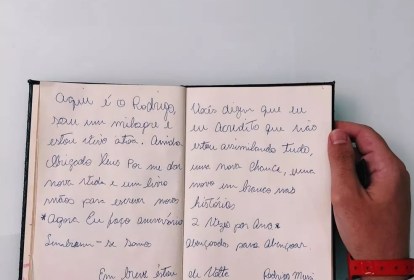 Aqui é o Rodrigo,
sou um milagre e
estou vivo
Obrigado Por me dar
nova vida e um livro
para escrever novas
*Agora Eu faço aniversário
Lembram-se Somos
Em breve estou
Vocês dizem que eu
eu Acredito que não
estou assimilando tudo,
uma nova chance, uma
novo em branco nas
histórias
2 Vezes por Ano*
Abençoados para Abençoar
de Volta Rodrigo